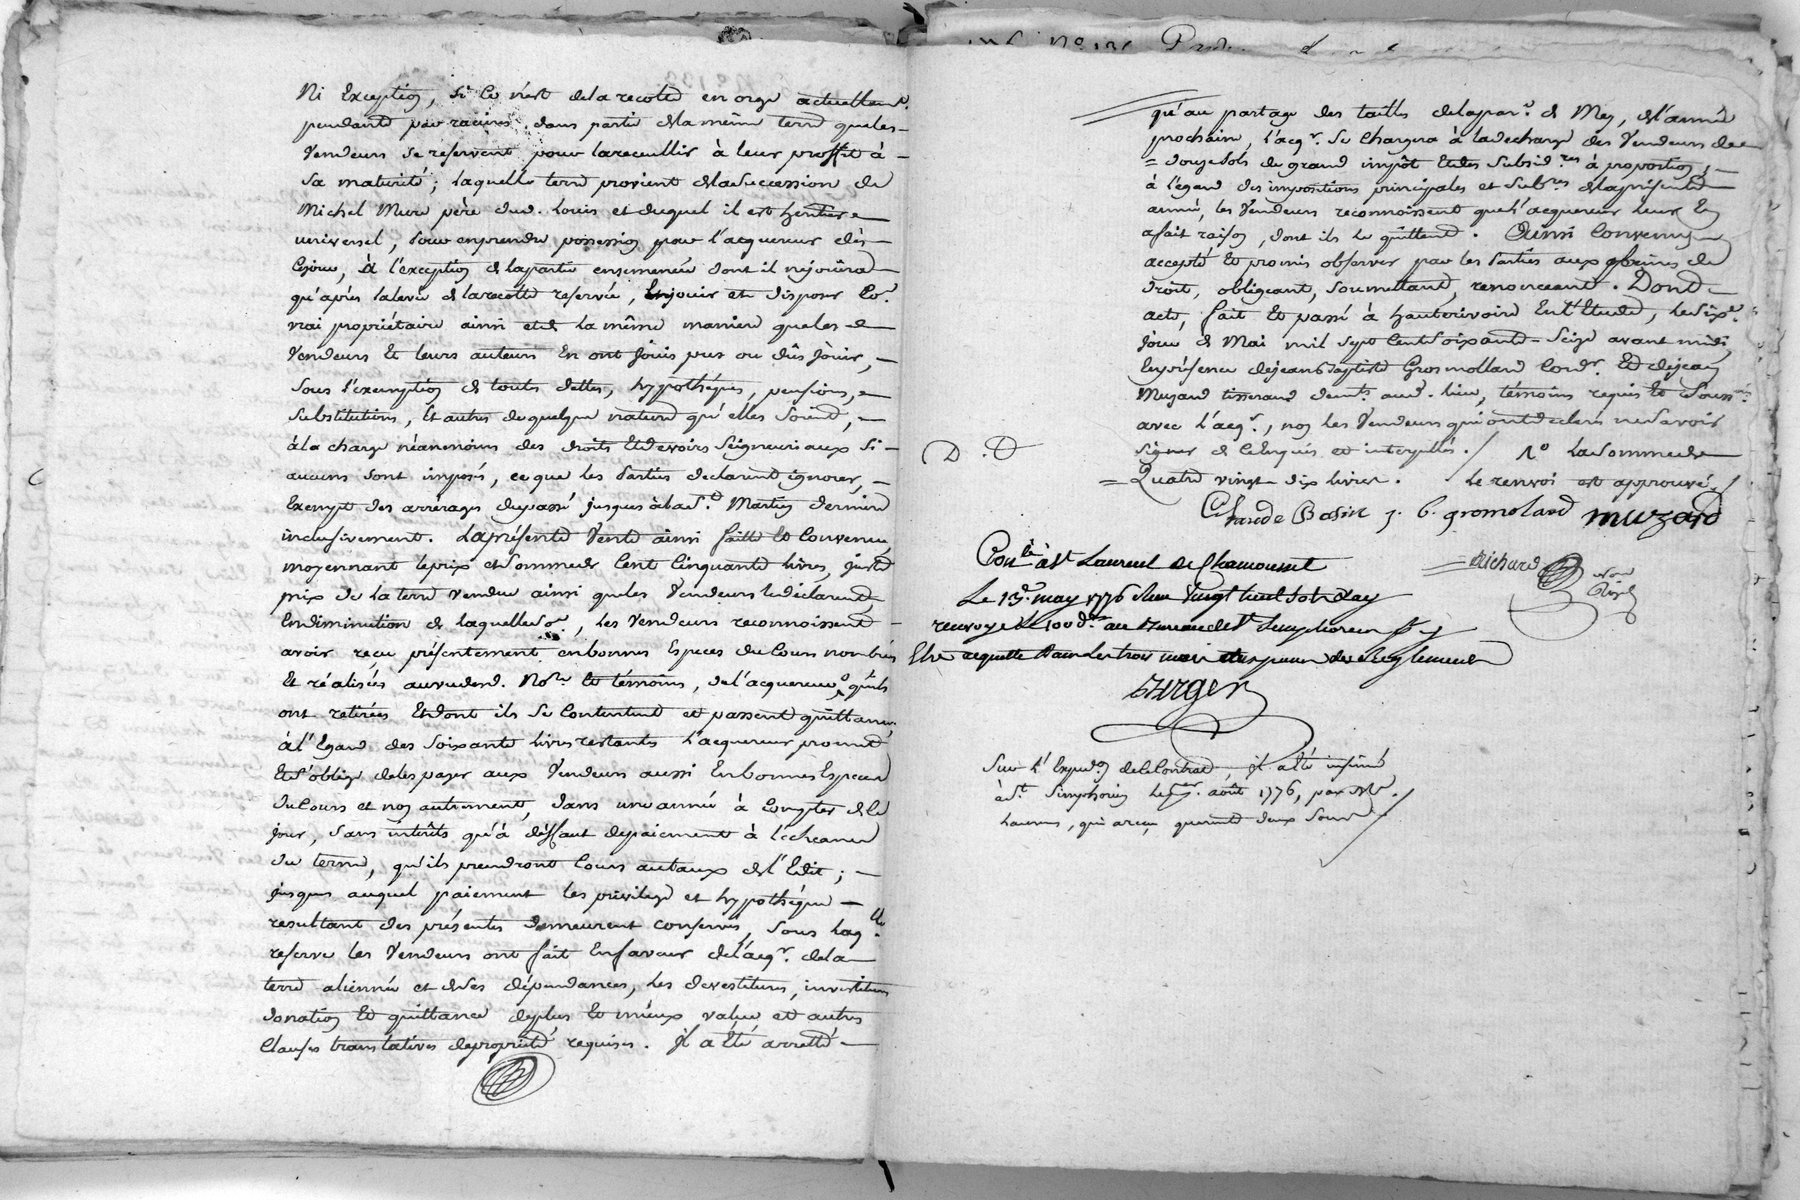 Ni Exception, si ce n'est de la recolte en orge actuellem.t
pendante par racines dans partie de la même terre que les
Vendeurs se reservent pour la receuillir à leur proffit à
sa maturité; laquelle terre provient de la succession de
Michel Mure père dud. Louis et duquel il est heritier
universel, pour en prendre possession pour l'acquereur dès
ce jour, à l'exception de la partie ensemencée dont il ne jouira
qu'après la levée de la recolte reservée, En jouir et en disposer Co.e
vrai propriétaire ainsi et de la même maniere que les
Vendeurs Et leurs auteurs En ont joüi pus ou dûs joüir,
sous l'exemption de toutes dettes, hypothéques, pensions,
substitutions, Et autres de quelque nature qu'elles soient,
à la charge néanmoins des droits Et devoirs seigneuriaux si
aucuns sont imposés, ce que les Parties declarent ignorer,
Exempt des arrérages du passé jusques à la S.t Martin derniere
inclusivement. La présente Vente ainsi faitte Et Convenue
moyennant le prix et somme de Cent Cinquante livres, juste
prix de la terre vendue ainsi que les Vendeurs le déclarent,
En diminution de laquelle so.e, les Vendeurs reconnoissent
avoir reçu présentement en bonnes Especes du Cours nombrées
Et réalisées au vu desd. No.re Et témoins, de l'acquereur, qu'ils
ont retirées Et dont ils se Contentent et passent quittance,
à l'Egard des soixante livres restants l'acquereur promet
Et s'oblige de les payer aux Vendeurs aussi En bonnes Especes
du Cours et non autrement, dans une année à Compter de ce
jour, sans interêts qu'à deffaut de paiement à l'echeance
du terme, qu'ils prendront Cours au taux de l'Edit;
jusques auquel paiement les privilege et hypothéque
resultant des présentes demeurent conservés, sous laq.lle
reserve les Vendeurs ont fait En faveur de l'acq.r de la
terre aliennée et de ses dépendances, les devestitures, investitures
donation Et quittance de plus Et mieux value et autres
Clauses translatives de propriété requises. il a Eté arretté
qu'au partage des tailles de la par.e de Mey, de l'année
prochaine, l'acq.r se Chargera à la decharge des Vendeurs de
= douze sols de grand impôt Et des subsid.res à proportion,
à l'égard des impositions principales et sub.res de la présente
année, les Vendeurs reconnoissent que l'acquereur leur En
a fait raison, dont ils le quittent. Ainsi Convenu,
accepté Et promis observer par les Parties aux peines de
droit, obligeant, soumettant, renonceant. Dont
acte, fait Et passé à hauterivoire En l'Etude, le six.e
jour de Mai mil sept Cent soixante-seize avant midi,
En présence de jean Baptiste Gromollard Cord.r Et de jean
Muzard tisserand dem.ts aud. lieu, témoins requis Et sousi.nés
avec l'acq.r, non les Vendeurs qui ont declaré ne savoir
signer de Ce Enquis et interpellés./ 1.o la somme de
= Quatre vingt-dix livres. le renvoi est approuvé./
D. D
Claude Basin j. b. gromolard muzard
= Richard No.re Royal
Con.lé à S.t Laurent de Chamousset
Le 13.e may 1776 Reçu Vingt huit sols Et ay
renvoyé le 100.e d. au Bureau de S.t Simphorien p.r y
Etre acquitté dans les trois mois aux peines des Reglemens
Burger
Sur l'Exped.on de Ce Contrat, il a Eté insinué
à S.t Simphorien le août 1776, par M.r
Laurens, qui a reçu quarante deux sous